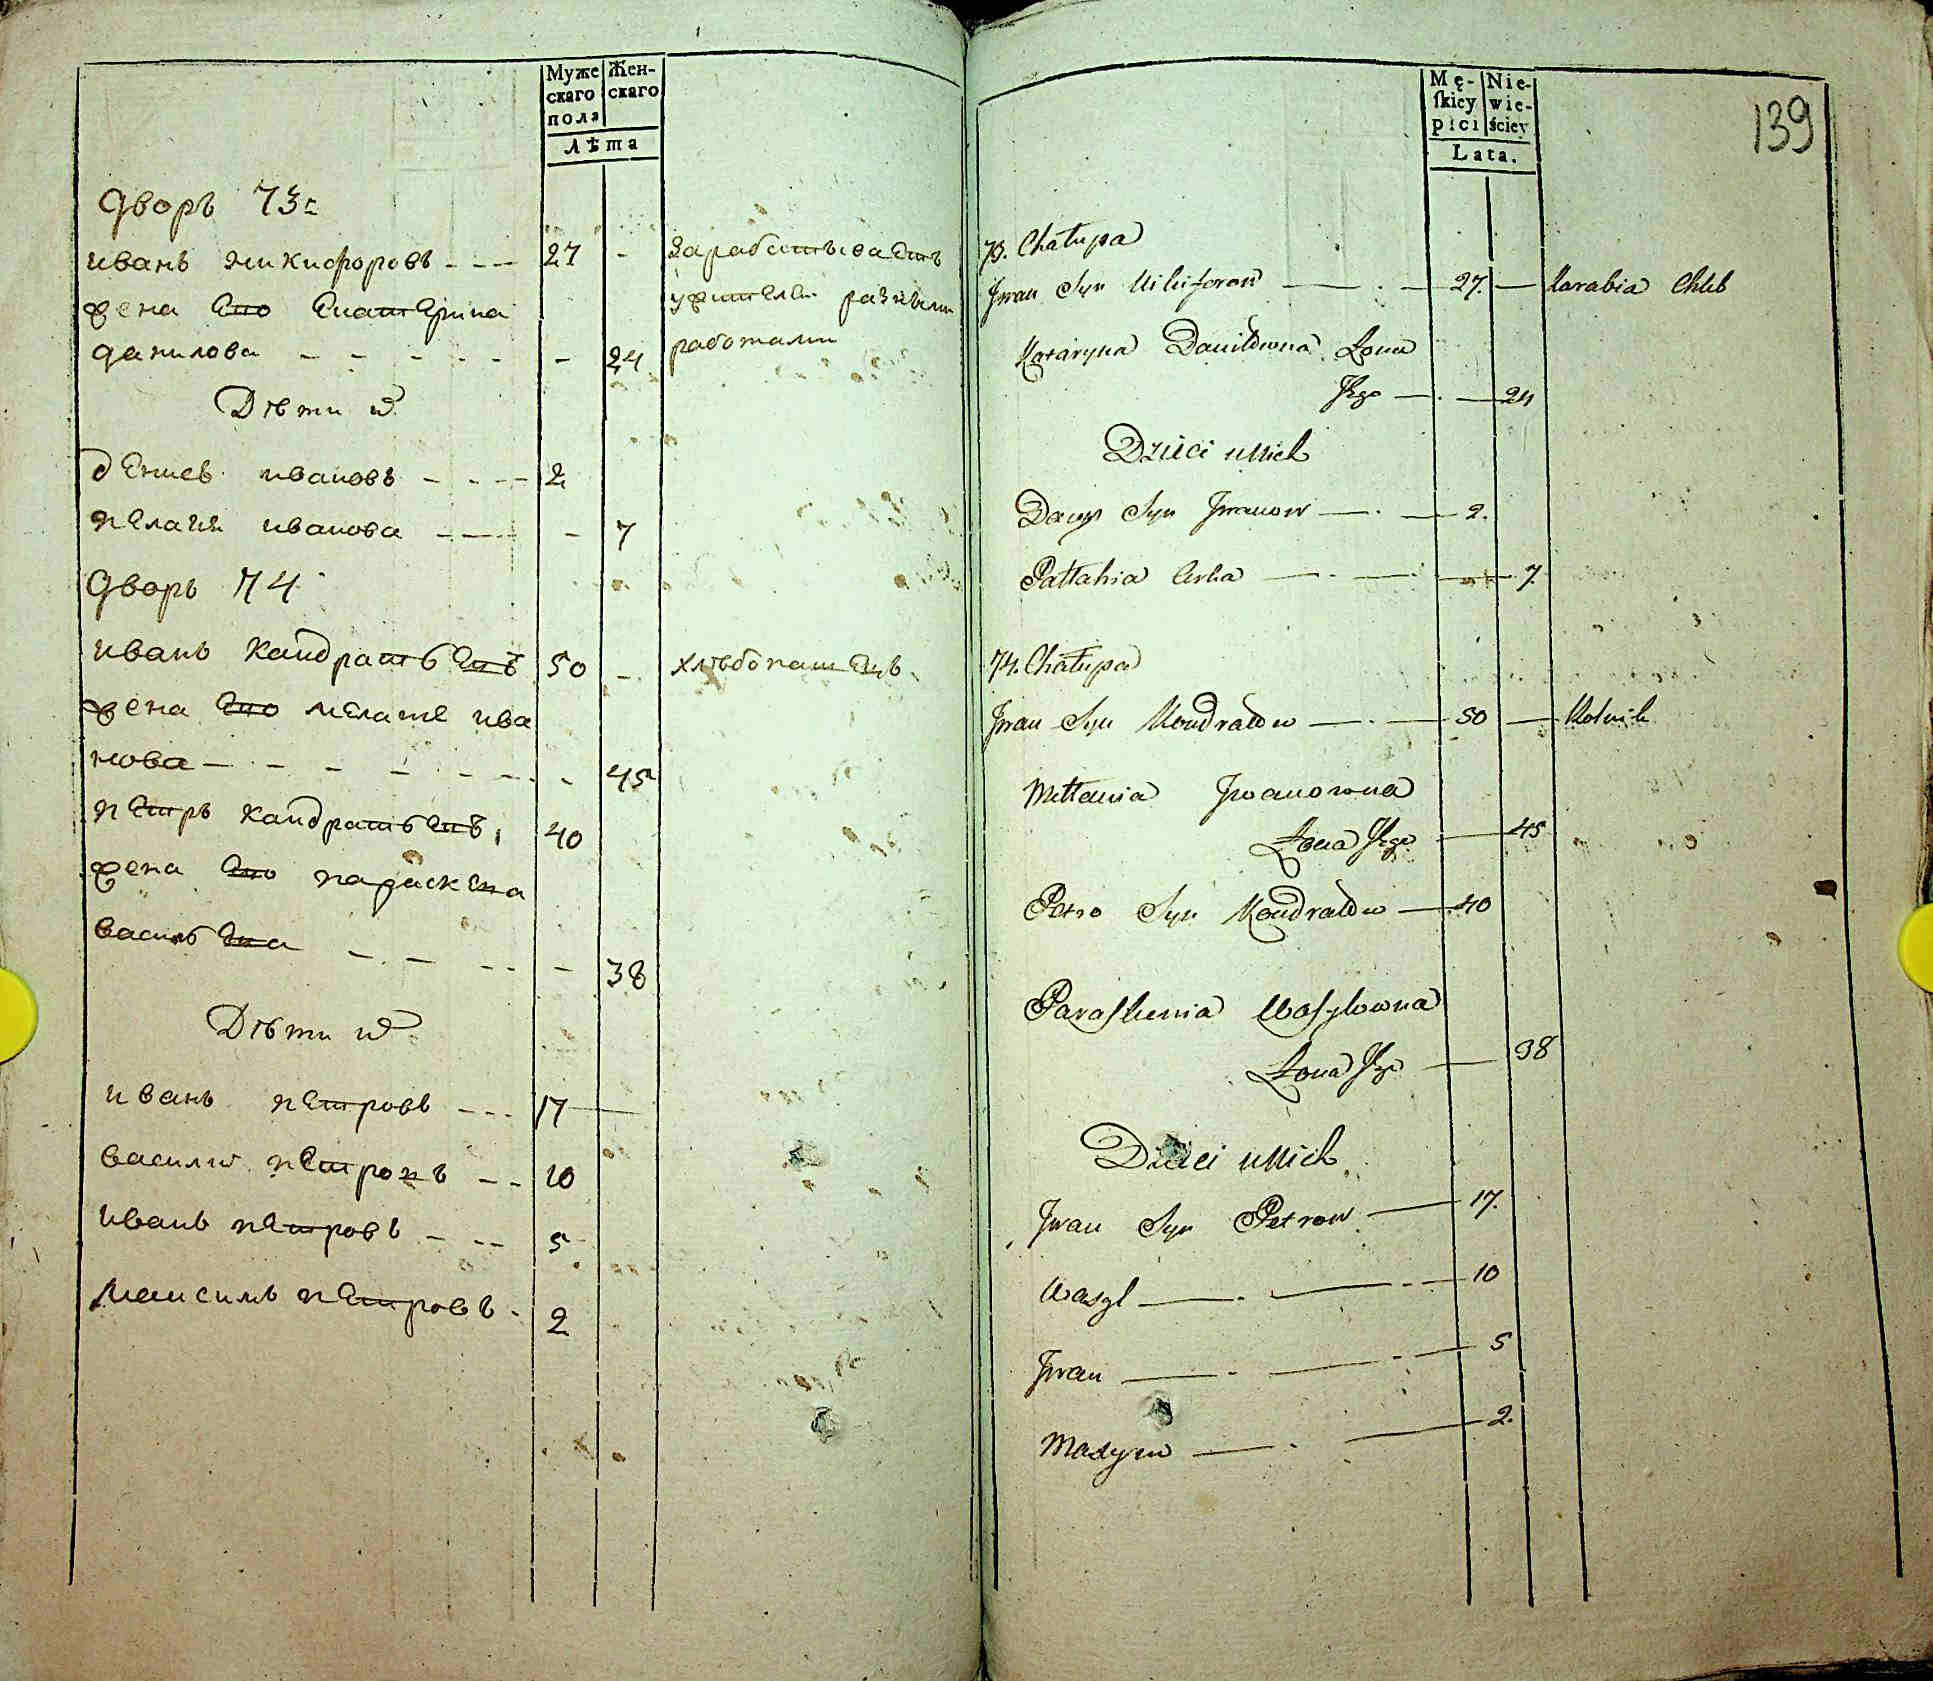 Муже Жен-
скаго скаго
пола
Лѣта
дворъ 73й
иванъ никифоровъ - - - 27 - Зарабатываетъ
жена Его Екатерина разными
данилова - - - - - - 24 работами
Дѣти их
денисъ ивановъ - - - - 2
пелагия иванова - - - - 7
дворъ 74
иванъ кандратьевъ 50 - хлѣбопашецъ
жена Его мелания ива
нова - - - - - - - 45
петръ кандратьевъ, 40
жена Его параскева
васильева - - - - - 38
Дѣти их
иванъ петровъ - - - 17
василий петровъ - - 10
иванъ петровъ - - - 5
максимъ петровъ - 2
139
Mę- Nie-
ſkiey wie-
płci ściey
Lata.
73. Chałupa
Jwan Syn Nikiforow 27. Zarabia Chleb
Kataryna Daniłowna Żona
Jego 24
Dzieci u Nich
Denys Syn Jwanow 2.
Pałłahia Corka 7
74. Chałupa
Jwan Syn Kondratow 50 Rolnik
Mełłania Jwanowna
Żona Jego 45
Petro Syn Kondratow 40
Paraſkewia Waſylowna
Żona Jego 38
Dzieci u Nich
Jwan Syn Petrow 17.
Wasyl 10
Jwan 5
Maxym 2.